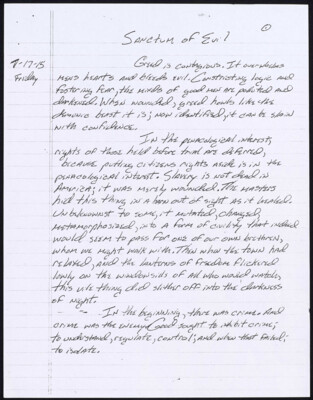 Sanctum of Evil
1
7-17-15
Friday
Greed is contagious. It overwhelms
men's hearts and bleeds evil. Constricting logic and
fostering fear, the minds of good men are polluted and
darkened. When wounded, greed howls like the
demonic beast it is; now identified, it can be slain
with confidence.
In the penological interest,
rights of those held before trial are deferred,
because putting citizens rights aside is in the
penological interest. Slavery is not dead in
America; it was merely wounded. The masters
hid this thing in a barn out of sight as it healed.
Unbeknownst to some, it mutated, changed,
metamorphosized, into a form of civility that indeed
would seem to pass for one of our own brethren,
whom we might walk with. Then when the town had
relaxed, and the lanterns of freedom flickered
lowly on the windowsills of all who would watch,
this vile thing did slither off into the darkness
of night.
- - In the beginning, there was crime. And
crime was the enemy. Good sought to inhibit crime;
to understand, regulate, control; and when that failed;
to isolate.